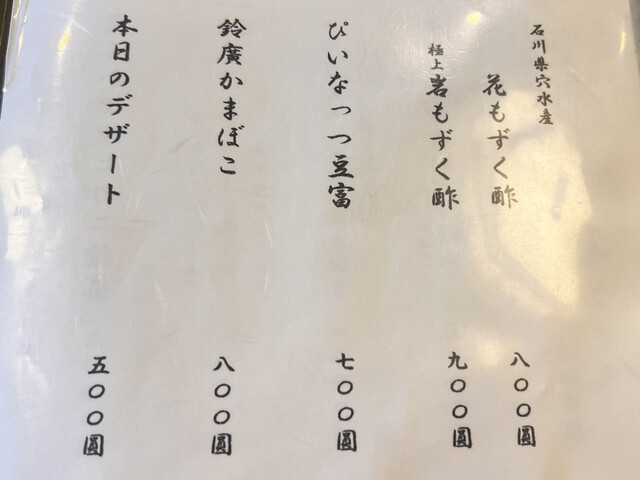 石川県穴水産
花もずく酢 八〇〇圓
極上 岩もずく酢 九〇〇圓
ぴいなっつ豆富 七〇〇圓
鈴廣かまぼこ 八〇〇圓
本日のデザート 五〇〇圓